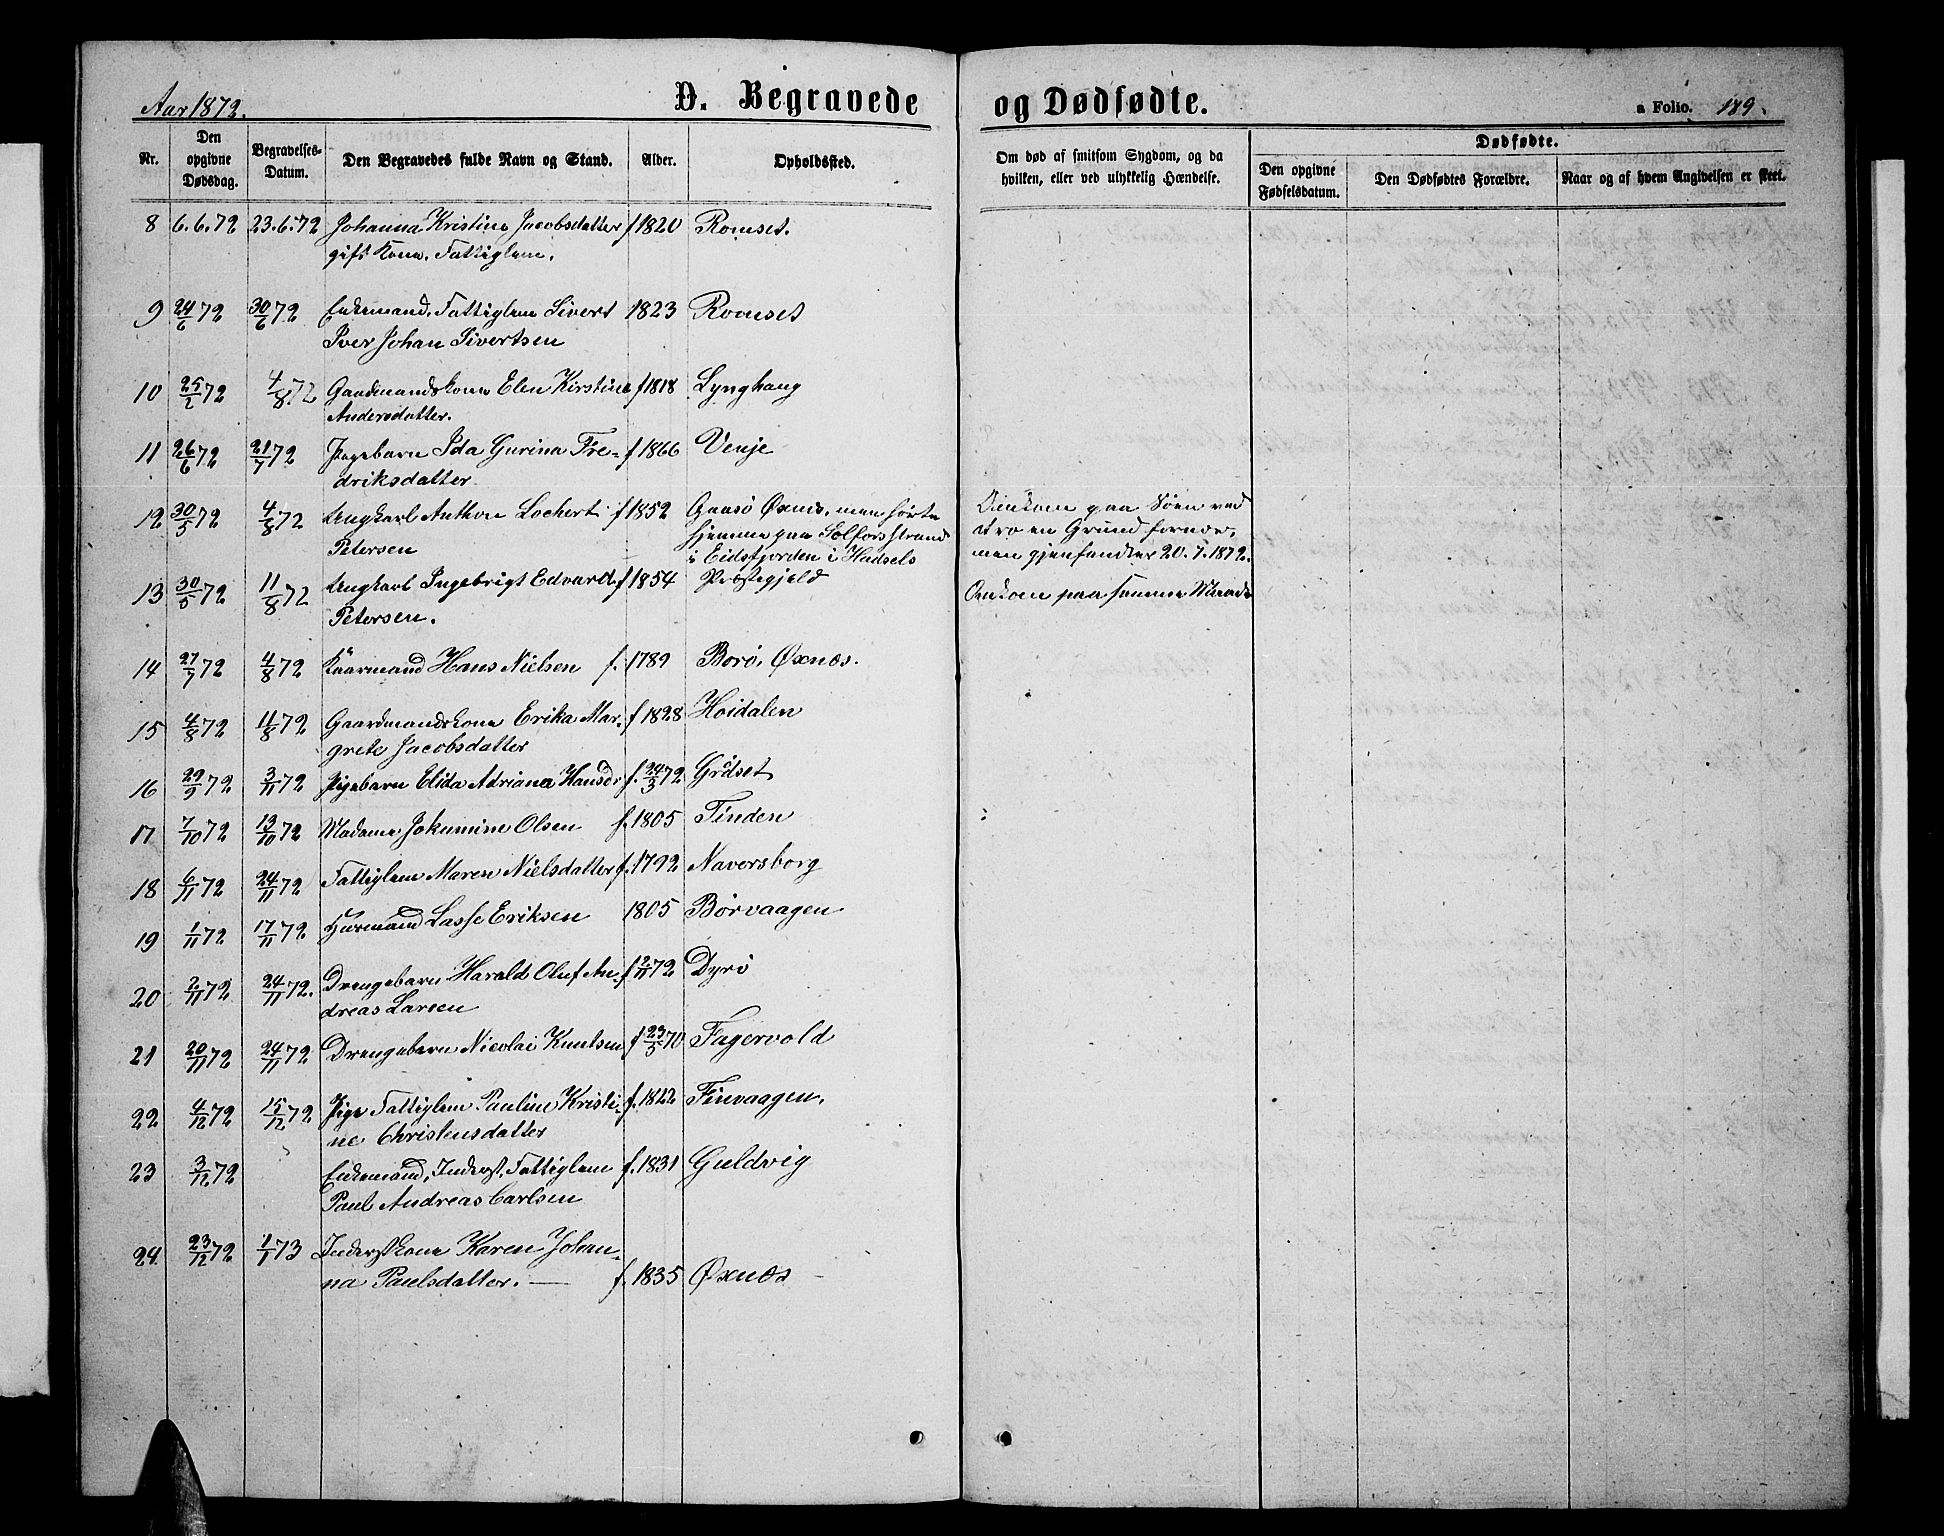 Aar 1872.
D. Begravede og Dødfødte.
a Folio. 189.
Nr.
Den opgivne Dødsdag.
Begravelses-Datum.
Den Begravedes fulde Navn og Stand.
Alder.
Opholdssted.
Om død af smitsom Sygdom, og da hvilken, eller ved ulykkelig Hændelse.
Dødfødte.
Den opgivne Fødselsdatum.
Den Dødfødtes Forældre.
Naar og af hvem Angivelsen er skeet.
8 6.6.72 23.6.72 Johanna Kristine Jacobsdatter f 1820 Romset.
gift Kone. Fattiglem.
9 24/6 72 30/6 72 Enkemand, Fattiglem Sivert 1823 Romset
Iver Johan Sivertsen
10 25/2 72 4/8 72 Gaardmandskone Elen Kirstine f 1818 Lynghaug
Andersdatter.
11 26/6 72 21/7 72 Pigebarn Ida Gurina Fre- f 1866 Venje
driksdatter
12 30/5 72 4/8 72 Ungkarl Anthon Lochert f 1852 Gaasø Øxnes, men hørte
Petersen
hjemme paa
i Eidsfjorden i Hadsels
Præstegjeld
Omkom paa Søen ved
at ro en Grund fornær,
men gjenfandtes 20.7.1872.
13 30/5 72 11/8 72 Ungkarl Ingebrigt Edvard f 1854
Petersen.
Omkom paa samme Maade
14 27/7 72 4/8 72 Kaarmand Hans Nielsen f. 1789 Borø, Øxnes.
15 4/8 72 11/8 72 Gaardmandskone Erika Mar- f 1828 Høidalen
grete Jacobsdatter
16 29/9 72 3/11 72 Pigebarn Elida Adriana Hansdr f. 24/3 72 Grødset
17 7/10 72 13/10 72 Madame Jokumine Olsen f. 1805 Tinden
18 6/11 72 24/11 72 Fattiglem Maren Nielsdatter f. 1792 Naversborg
19 1/11 72 17/11 72 Huusmand Lasse Eriksen 1805 Børvaagen
20 2/11 72 24/11 72. Drengebarn Harald Oluf An- f 2/11 72 Dyrø
dreas Larsen
21 20/11 72 24/11 72 Drengebarn Nicolai Knutsen f 23/5 70 Fagervold
22 4/12 72 15/12 72 Pige Fattiglem Pauline Kristi- f. 1822 Finvaagen.
ne Christensdatter
23 3/12 72 Enkemand, Inderst, Fattiglem f. 1831 Guldvig
Paul Andreas Carlsen
24 23/12 72 1/1 73 Inderstkone Karen Johan-
na Paulsdatter. — f. 1835 Øxnes